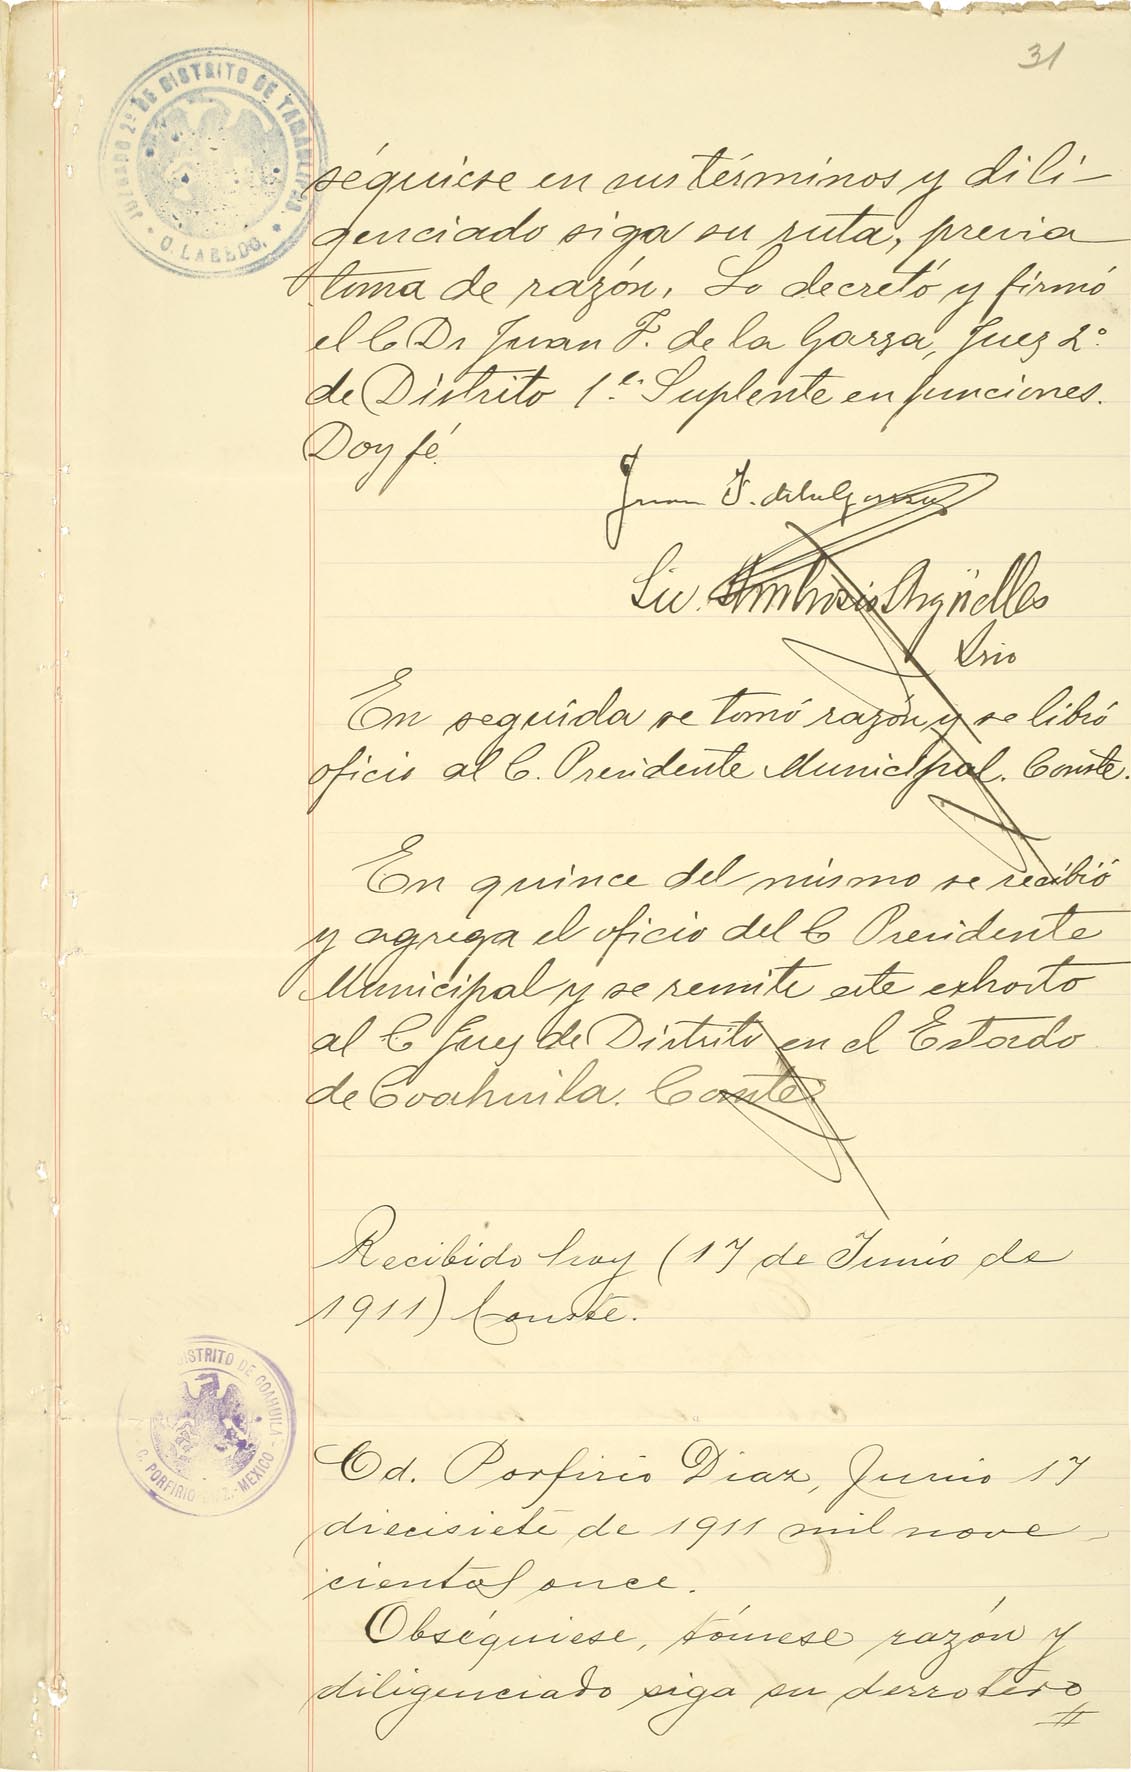 31
JUZGADO 2º DE DISTRITO DE TAMAULIPAS.
* C. LAREDO. *
séquiese en sus términos y dili-
genciado siga su ruta, previa
toma de razón. Lo decretó y firmó
el C Dr Juan F. de la Garza, Juez 2º
de Distrito 1er. Suplente en funciones.
Doy fé.
Juan F. de la Garza
Lic. Ambrosio Argüelles
Srio
En seguida se tomó razón y se libró
oficio al C. Presidente Municipal. Conste.
En quince del mismo se recibió
y agrega el oficio del C Presidente
Municipal y se remite este exhorto
al C Juez de Distrito en el Estado
de Coahuila. Conste.
Recibido hoy (17 de Junio de
1911) Conste.
DISTRITO DE COAHUILA
C. PORFIRIO DIAZ.-MEXICO
Cd. Porfirio Diaz, Junio 17
diecisiete de 1911 mil nove-
cientos once.
Obséquiese, tómese razón y
diligenciado siga su derrotero